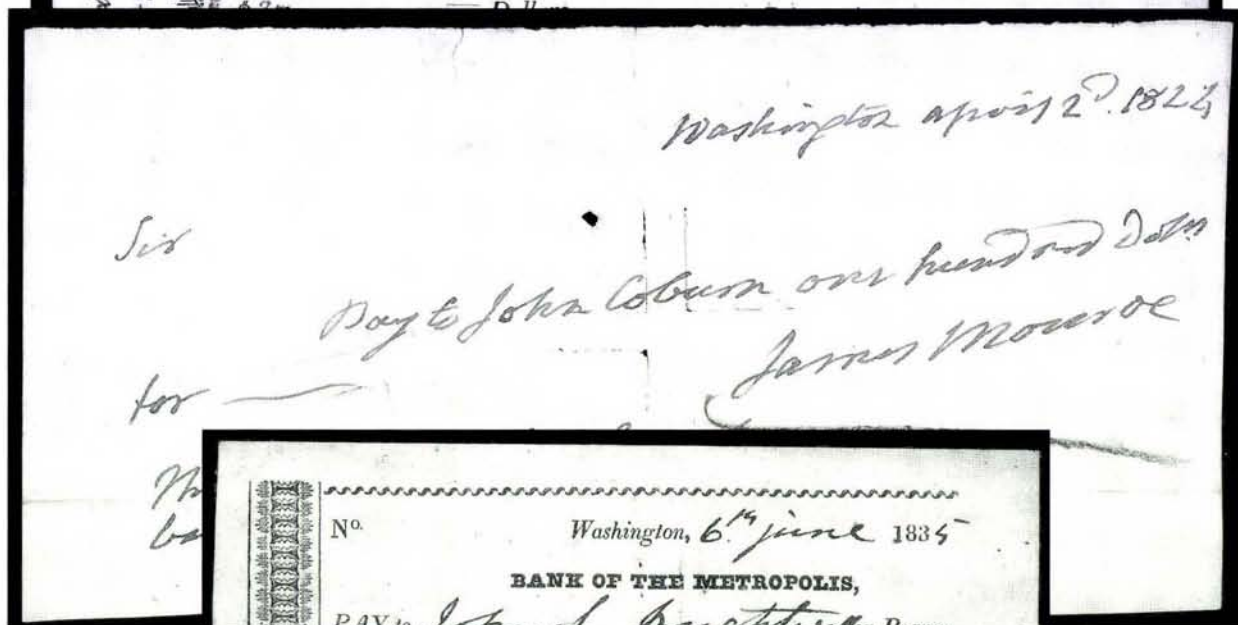 Washington april 2d. 182
Sir
Pay to John Coburn one hundred Dolrs
James Monroe
for
Th
ba
No. Washington, 6th june 1835
BANK OF THE METROPOLIS,
PAY to John